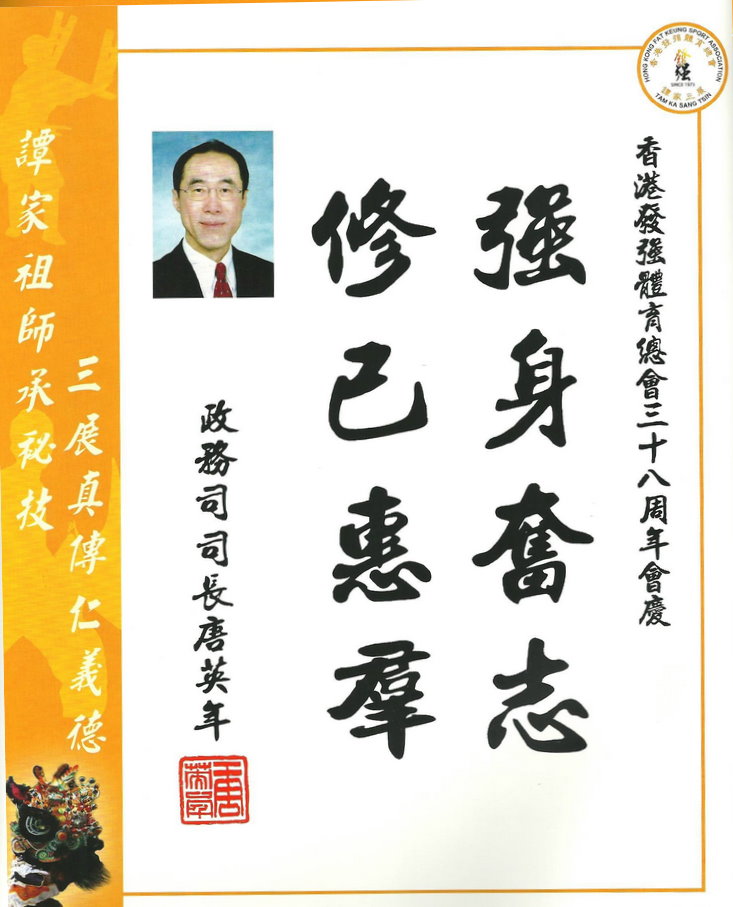 香港發强體育總會三十八周年會慶
强身奮志
修己惠羣
政務司司長唐英年
唐英年
譚家祖師承祕技
三展真傳仁義德
HONG KONG FAT KEUNG SPORT ASSOCIATION
香港發强體育總會
發强
SINCE 1973
譚家三展
TAM KA SANG TSIN